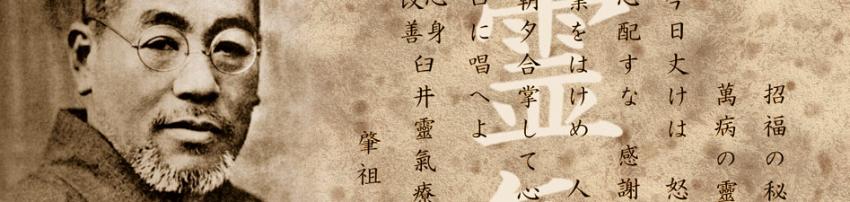 招福の秘
萬病の靈
今日丈けは 怒
心配すな 感謝
業をはけめ 人
朝夕合掌して心
口に唱へよ
心身
改善
臼井靈氣療
肇祖
靈